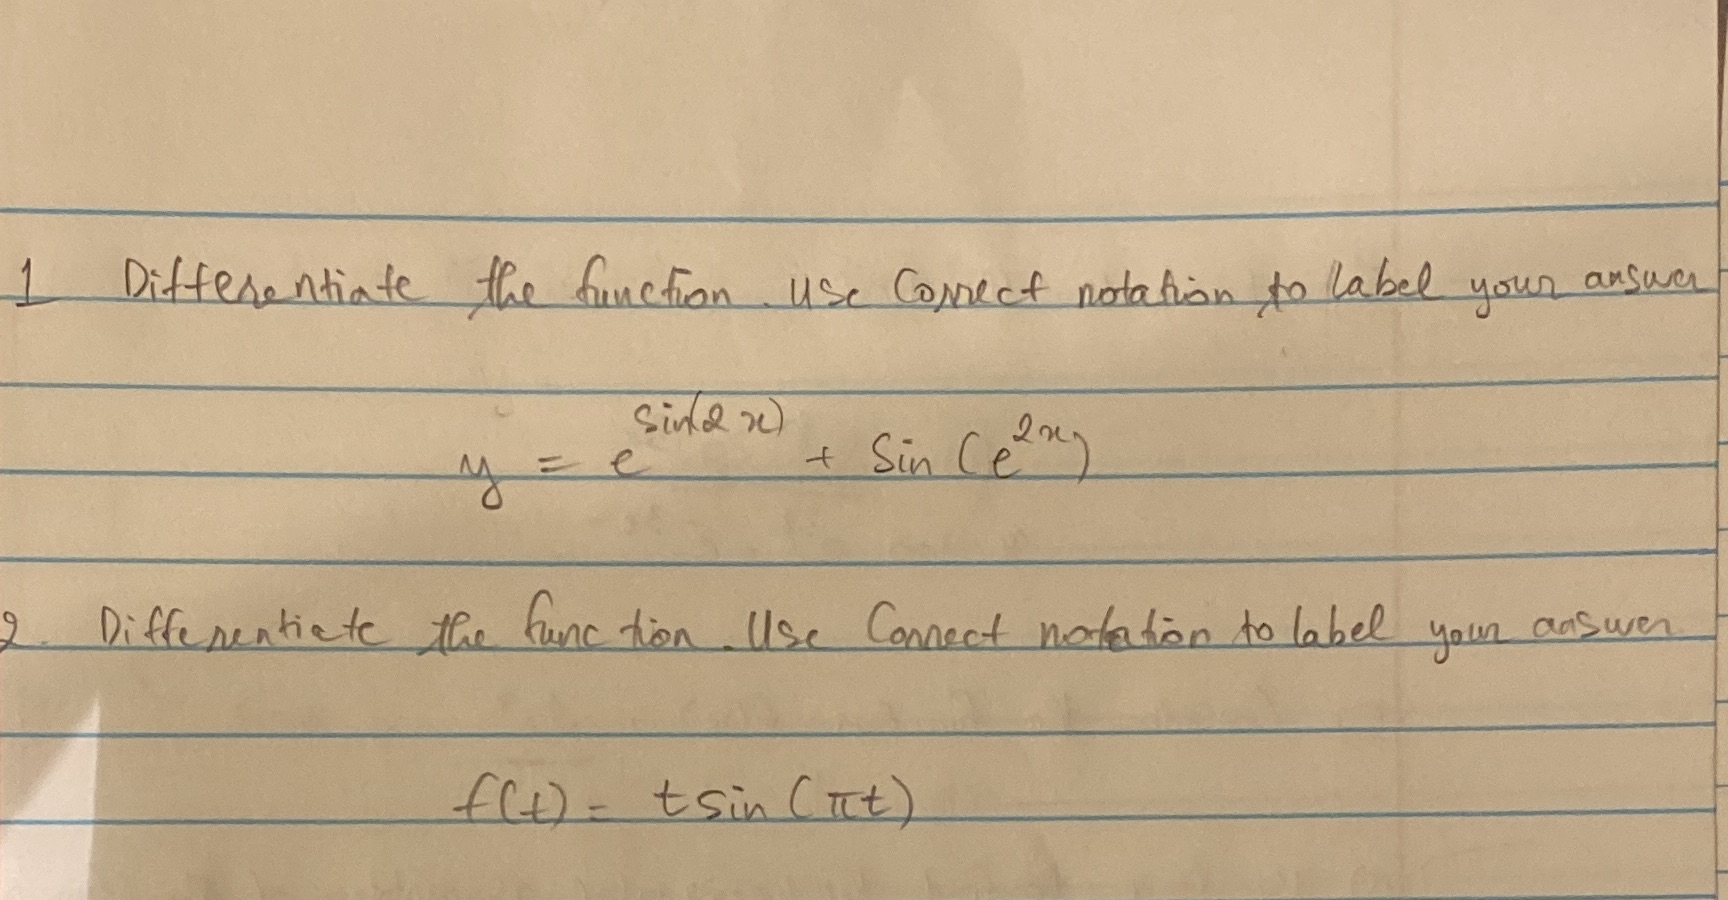 1 Differentiate the function. Use Correct notation to label your answer
y = e^sin(2x) + Sin (e^2x)
2. Differentiate the function. Use Correct notation to label your answer
f(t) = t sin (πt)